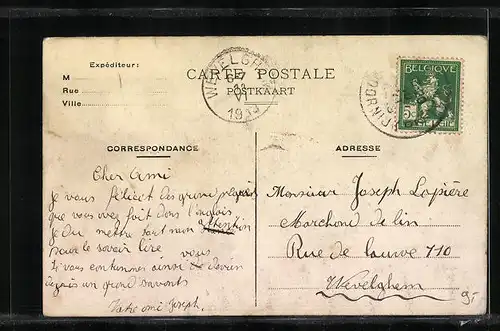 Expéditeur:
M
Rue
Ville
CARTE POSTALE
POSTKAART
WEVELGH
1913
BELGIQUE
5
CORRESPONDANCE
ADRESSE
Cher Ami
Je vous félicit des grand progrès
que vous avez fait dans l'anglais
Je
pour le savoir lire
vous
Si vous continuez ainsi de
un grand savant
Votre ami Joseph.
Monsieur Joseph Lapière
Marchand de lin
Rue de Lauwe 110
Wevelghem
9,-